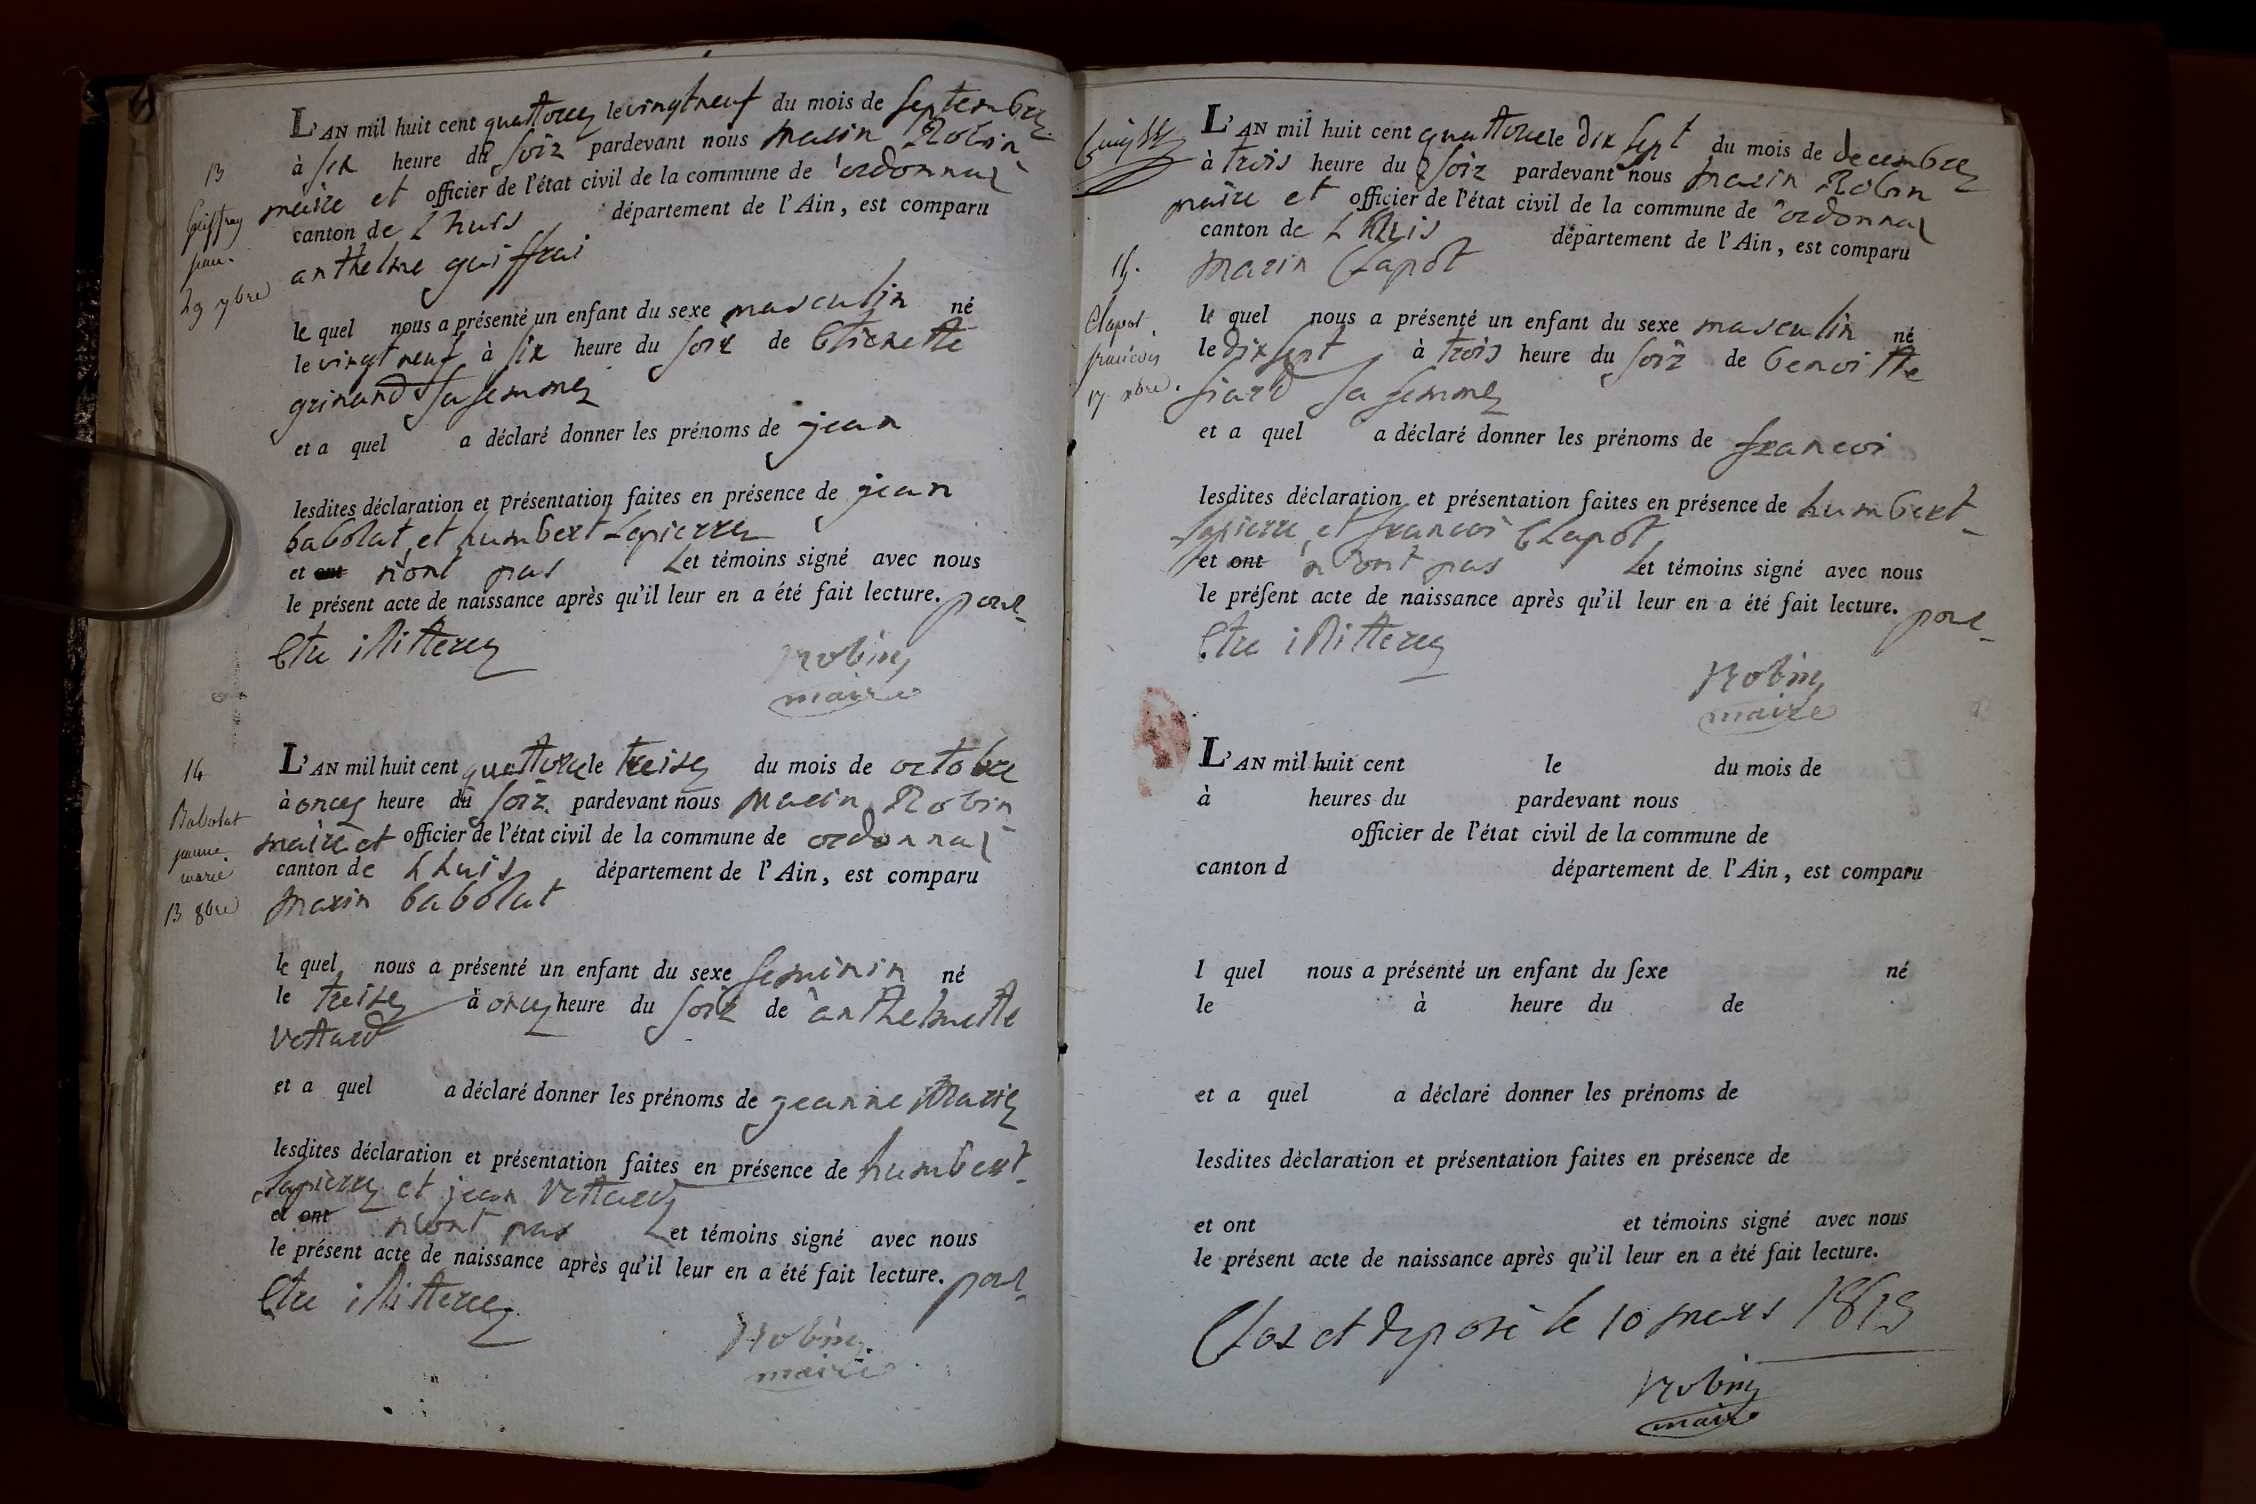 L'AN mil huit cent quattorcy le vingt neuf du mois de septembre
à six heure du soir pardevant nous marin Robin
maire et officier de l'état civil de la commune de ordonnas
canton de Lhuis département de l'Ain, est comparu
anthelme guiffrai
le quel nous a présenté un enfant du sexe masculin né
le vingt neuf à six heure du soir de Etienette
grinand sa femme
et a quel a déclaré donner les prénoms de jean
lesdites déclaration et présentation faites en présence de jean
babolat et humbert Lapierre
et ont n'ont pas et témoins signé avec nous
le présent acte de naissance après qu'il leur en a été fait lecture. pour
Etre illiterey
Robin
maire
13
Guiffray
jean.
29 7bre
L'AN mil huit cent quattorce le treise du mois de octobre
à oncey heure du soir pardevant nous marin Robin
maire et officier de l'état civil de la commune de ordonnas
canton de Lhuis département de l'Ain, est comparu
marin babolat
le quel nous a présenté un enfant du sexe feminin né
le treise à oncy heure du soir de anthelmette
vettard
et a quel a déclaré donner les prénoms de jeanne Marie
lesdites déclaration et présentation faites en présence de humbert
Lapierre et jean vettard
et ont n'ont pas et témoins signé avec nous
le présent acte de naissance après qu'il leur en a été fait lecture. pour
Etre illiterey
Robin
maire
14
Babolat
jeanne
marie
13 8bre
L'AN mil huit cent quattorce le dix sept du mois de decembre
à trois heure du soir pardevant nous marin Robin
maire et officier de l'état civil de la commune de ordonnas
canton de Lhuis département de l'Ain, est comparu
marin Clapot
le quel nous a présenté un enfant du sexe masculin né
le dix sept à trois heure du soir de benoitte
siard sa femme
et a quel a déclaré donner les prénoms de francoi
lesdites déclaration et présentation faites en présence de humbert
Lapierre et francoi Clapot
et ont n'ont pas et témoins signé avec nous
le préſent acte de naissance après qu'il leur en a été fait lecture. pour
Etre illiterey
Robin
maire
15.
Clapot
francois
17 xbre.
L'AN mil huit cent le du mois de
à heures du pardevant nous
officier de l'état civil de la commune de
canton d département de l'Ain, est comparu
l quel nous a présenté un enfant du ſexe né
le à heure du de
et a quel a déclaré donner les prénoms de
lesdites déclaration et présentation faites en présence de
et ont et témoins signé avec nous
le présent acte de naissance après qu'il leur en a été fait lecture.
Clos et deposé le 10 mars 1815
Robin
maire